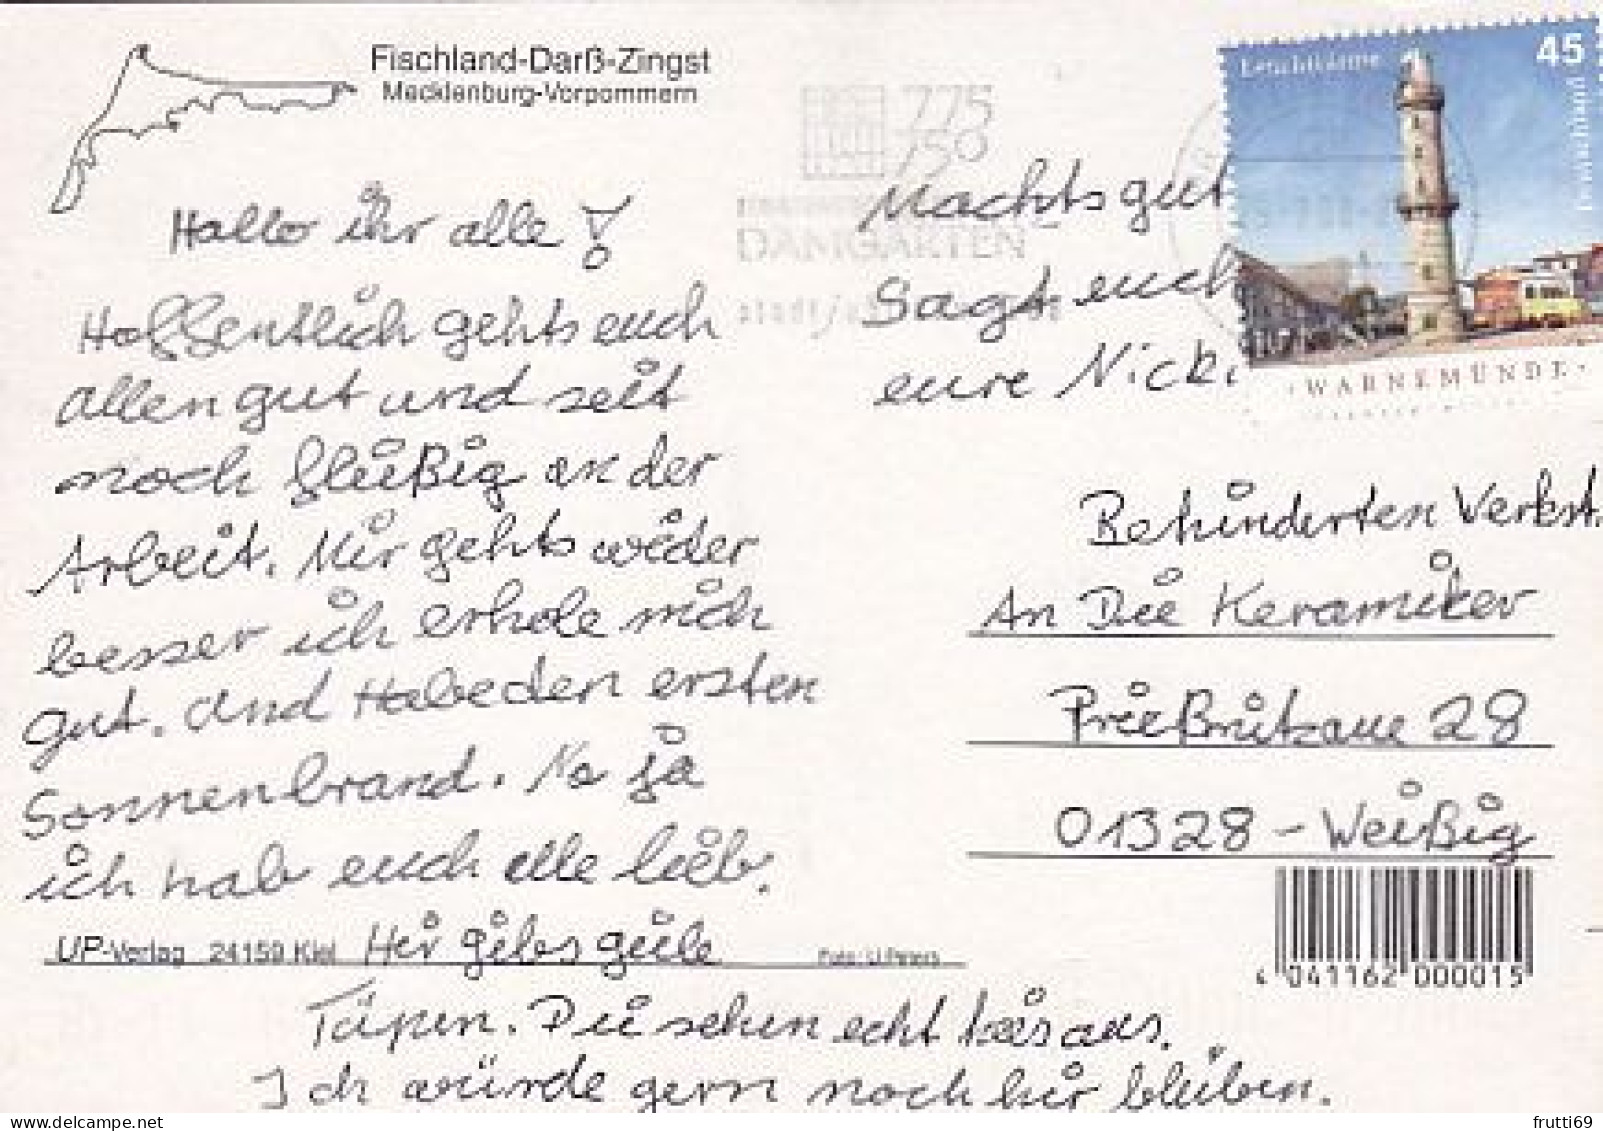 Fischland-Darß-Zingst
Mecklenburg-Vorpommern
Hallo ihr alle !
Hoffentlich gehts euch
allen gut und seit
noch fleißig an der
Arbeit. Mir gehts wieder
besser ich erhole mich
gut. Und Habe den ersten
Sonnenbrand. Na ja
ich hab euch alle lieb.
UP-Verlag 24159 Kiel
Hir gibs geile
Foto: U.Peters
Typen. Die sehen echt heis aus.
Ich würde gern noch hir bleiben.
Machts gut
Sagt euch
eure Nicki
775
750
DAMGARTEN
Leuchttürme
45
Deutschland
WARNEMÜNDE
Behinderten Werkst.
An Die Keramiker
Prießnitzaue 28
01328 - Weißig
4 041162 000015
frutti69